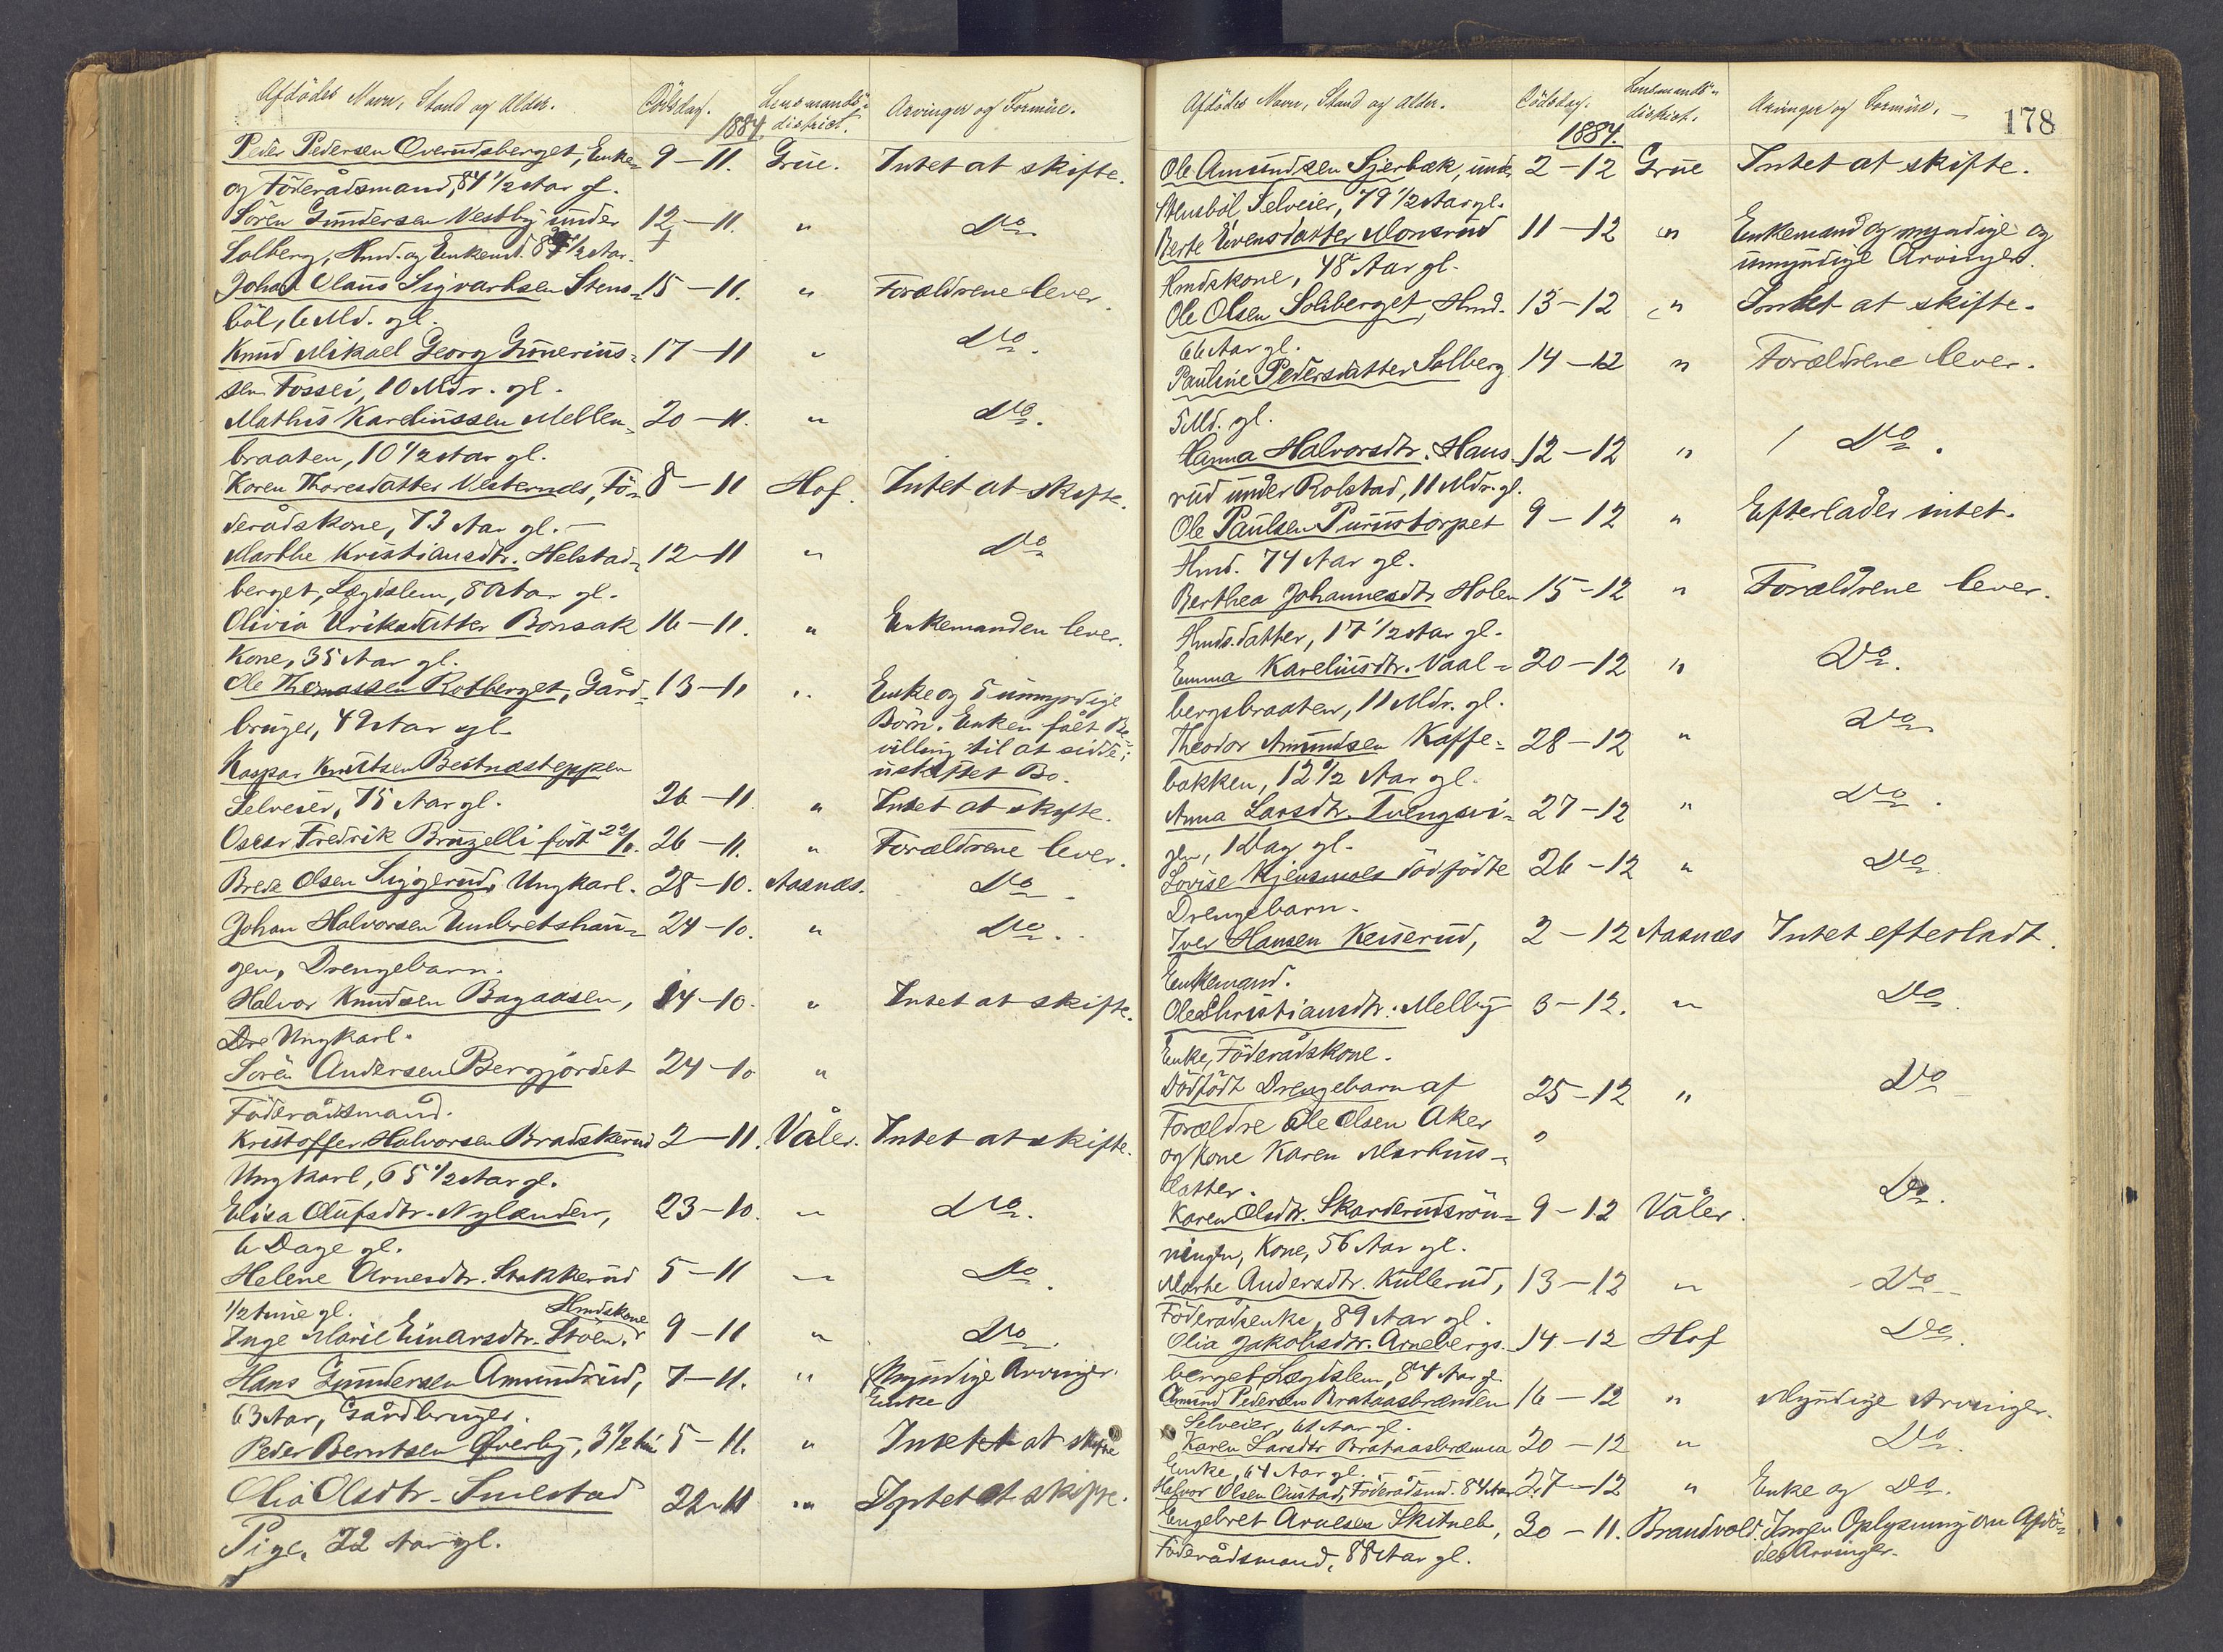 Afdödes Navn, Stand og Alder. Dödsdag. 1884. Lensmands-district. Arvinger og Formue.
Peder Pedersen Overudsberget, Enke- 9-11. Grue. Intet at skifte.
og Föderådsmand, 81 1/2 Aar gl.
Sören Gundersen Vestby under 12-11. " Do
Solberg, Hmd. og Enkemd. 1/2 Aar.
Johan Claus Sigvartsen Stens- 15-11. " Forældrene lever.
böl, 6 Md. gl.
Knud Mikael Georg Gunerius- 17-11 " Do.
sen Fossei, 10 Mdr. gl.
Mathis Kareliussen Mellem- 20-11. " Do.
braaten, 10 1/2 Aar gl.
Karen Thoresdatter Vesternæs, Fö- 8-11 Hof. Intet at skifte.
derådskone, 73 Aar gl.
Marthe Kristiansdtr. Helstad- 12-11 " Do
berget, Lægdslem, 80 Aar gl.
Olivia Eriksdatter Bonsak 16-11. " Enkemanden lever.
Kone, 35 Aar gl.
Ole Thomassen Rotberget, Gård- 13-11 " Enke og 5 umyndige
bruger, 49 Aar gl. Börn. Enken fået Be-
villing til at sidde i
uskiftet Bo.
Kaspar Knutsen Bestnæsteppen
Selveier, 75 Aar gl. 26-11. " Intet at skifte.
Oscar Fredrik Bruzelli födt 26-11. " Forældrene lever.
Brede Olsen Siggerud, Ungkarl. 28-10. Aasnæs. Do.
Johan Halvorsen Embretshau- 24-10. " Do.
gen, Drengebarn.
Halvor Knudsen Bagaasen, 14-10. " Intet at skifte.
Ungkarl.
Sören Andersen Bergjordet 24-10 "
Föderådsmand.
Kristoffer Halvorsen Bradskerud 2-11. Våler. Intet at skifte.
Ungkarl, 65 1/2 Aar gl.
Elisa Olufsdtr. Nylænder, 23-10. " Do.
6 Dage gl.
Helene Arnesdtr. Stakkerud 5-11 " Do.
1/2 time gl. Hmdskone
Inge Marie Einarsdtr. Stöen. 9-11 " Do.
Hans Gundersen Amundrud, 7-11. " Myndige Arvinger.
Enke
63 Aar, Gårdbruger.
Peder Berntsen Överby, 3 1/2 5-11. " Intet at skifte
Olia Olsdtr. Smestad 22-11 " Intet at skifte.
Pige, 72 Aar gl.
178
Afdödes Navn, Stand og Alder. Dödsdag. 1884. Lensmands-district. Arvinger og Formue.
Ole Amundsen Sjerbæk, under 2-12 Grue Intet at skifte.
Stensböl, Selveier, 79 1/2 Aar gl.
Berte Evensdatter Monsrud 11-12 " Enkemand og myndige og
Hmdskone, 48 Aar gl. umyndige Arvinger.
Ole Olsen Solberget, Hmd. 13-12 " Intet at skifte.
66 Aar gl.
Pauline Pedersdatter Solberg 14-12 " Forældrene lever.
5 Md. gl.
Hanna Halvorsdtr. Haus- 12-12 " Do.
rud under Rolstad, 11 Mdr. gl.
Ole Paulsen Purustorpet 9-12 " Efterlader intet.
Hmd. 74 Aar gl.
Berthea Johannesdtr. Holen 15-12 " Forældrene lever.
Hmds.datter, 17 1/2 Aar gl.
Emma Kareliusdtr. Vaal- 20-12 " Do.
bergsbraaten, 11 Mdr. gl.
Theodor Amundsen Kaffe- 28-12 " Do
bakken, 12 1/2 Aar gl.
Anna Larsdtr. Tvengsvi- 27-12 " Do.
gen, 1 Dag gl.
Lovise Kjensmoes dödfödte 26-12 " Do.
Drengebarn.
Iver Hansen Keiserud, 2-12 Aasnæs Intet efterladt.
Enkemand.
Olea Christiansdtr. Melby 3-12. " Do.
Enke, Föderådskone.
Dödfödt Drengebarn af 25-12 " Do
Forældre Ole Olsen Aker
og Kone Karen Marthins- "
datter.
Karen Olsdtr. Skarderudsrön- 9-12 Våler. Do.
ningen, Kone, 56 Aar gl.
Marte Andersdtr. Kullerud, 13-12 " Do
Föderådsenke, 89 Aar gl.
Olia Jakobsdtr. Arnebergs- 14-12 Hof Do.
berget Lægdslem, 84 Aar gl.
Amund Pedersen Brataasbrænden 16-12 " Myndige Arvinger.
Selveier, 61 Aar gl.
Karen Larsdtr Brataasbrænna 20-12 " Do.
Enke, 64 Aar gl.
Halvor Olsen Oustad, Föderådsmd. 84 Aar 27-12 " Enke og Do.
Engebret Arnesen Skitneb, 30-11. Brandvold. Ingen Oplysning om Afdö-
Föderådsmand, 88 Aar gl. des Arvinger.